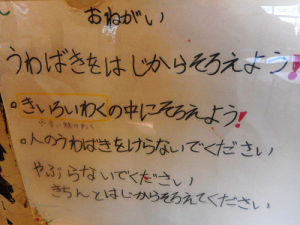 おねがい
うわばきをはじからそろえよう!
。きいろいわくの中にそろえよう!
。人のうわばきをけらないでください
やぶらないでください
きちんとはじからそろえてください